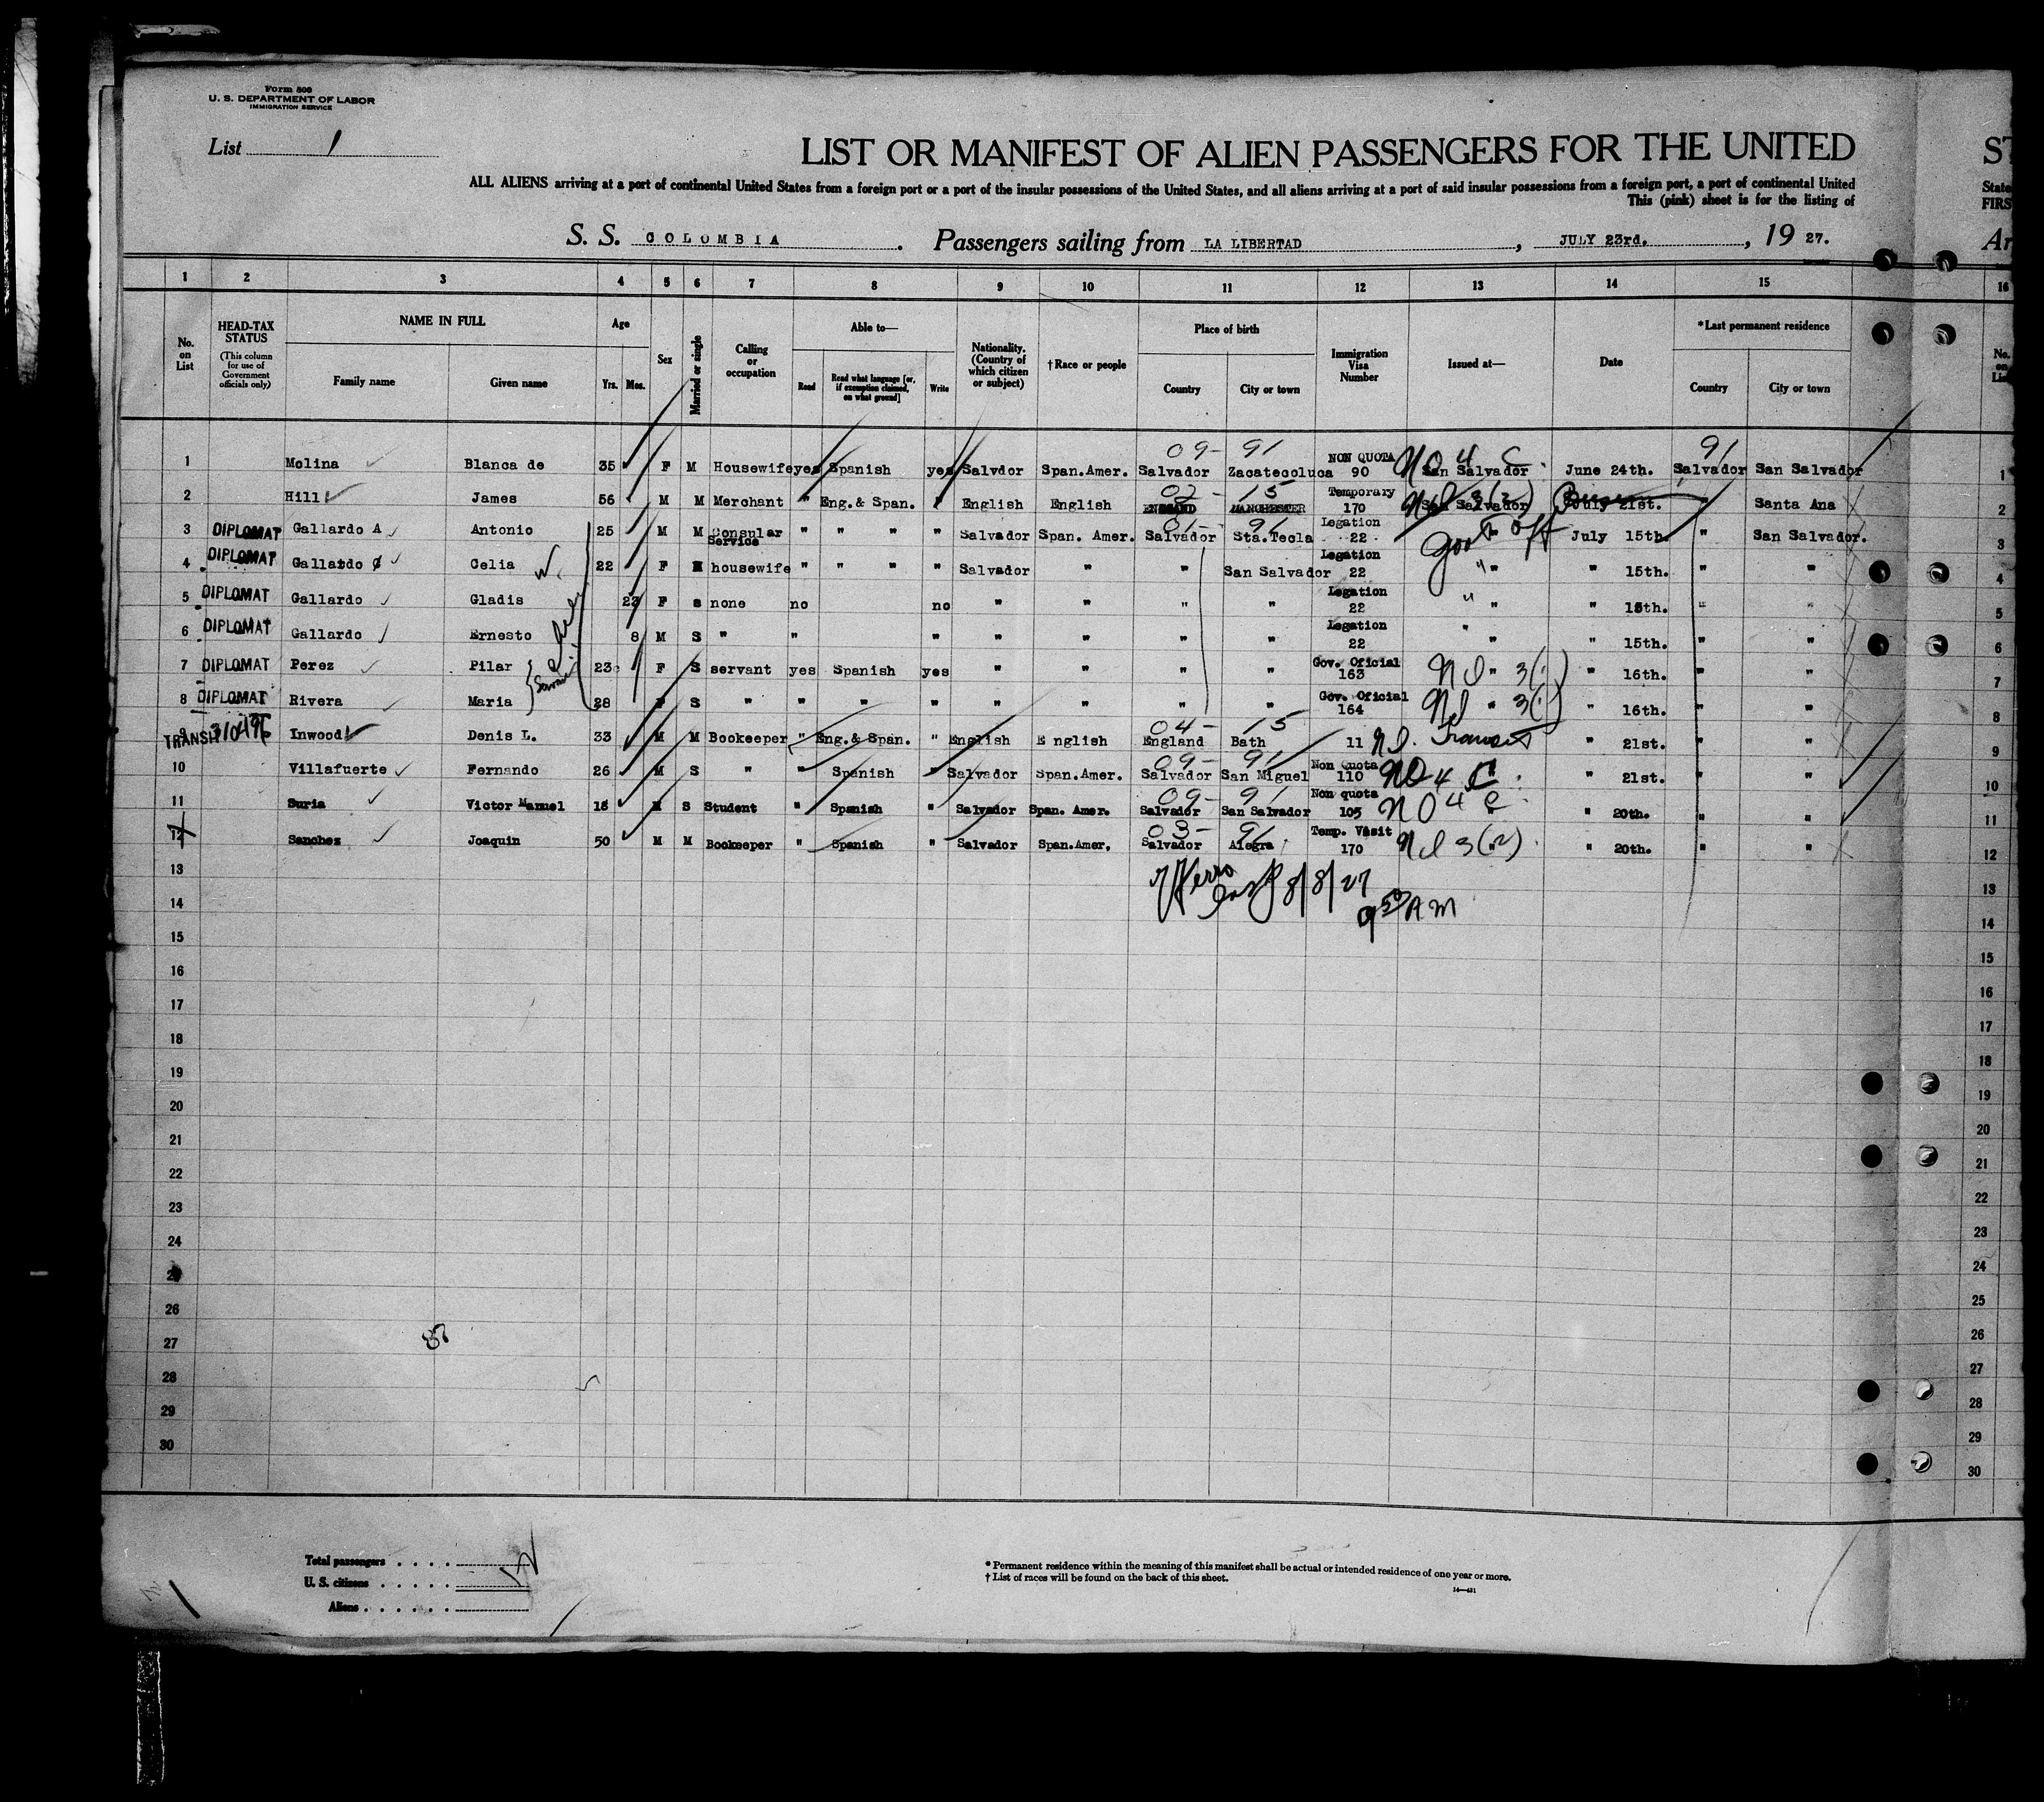 Form 500
U. S. DEPARTMENT OF LABOR
IMMIGRATION SERVICE
List 1
LIST OR MANIFEST OF ALIEN PASSENGERS FOR THE UNITED
ST
ALL ALIENS arriving at a port of continental United States from a foreign port or a port of the insular possessions of the United States, and all aliens arriving at a port of said insular possessions from a foreign port, a port of continental United
State
This (pink) sheet is for the listing of
FIRS
S. S. COLOMBIA. Passengers sailing from LA LIBERTAD, JULY 23rd., 1927.
Ar
1 2 3 4 5 6 7 8 9 10 11 12 13 14 15 16
No. on List
HEAD-TAX STATUS (This column for use of Government officials only)
NAME IN FULL
Family name Given name
Age
Yrs. Mos.
Sex
Married or single
Calling or occupation
Able to—
Read Read what language [or, if exemption claimed, on what ground] Write
Nationality. (Country of which citizen or subject)
†Race or people
Place of birth
Country City or town
Immigration Visa Number
Issued at—
Date
*Last permanent residence
Country City or town
No. on List
09- 91 91
1 Molina Blanca de 35 F M Housewife yes Spanish yes Salvdor Span.Amer. Salvador Zacatecoluca NON QUOTA 90 San Salvador NO 4 C June 24th. Salvador San Salvador 1
02- 15
2 Hill James 56 M M Merchant " Eng.& Span. " English English ENGLAND MANCHESTER Temporary 170 San Salvador 3(2) July 21st. " Santa Ana 2
01- 91
3 DIPLOMAT Gallardo A Antonio 25 M M Consular Service " " " " Salvador Span. Amer. Salvador Sta.Tecla Legation 22 " Govt Off July 15th. " San Salvador. 3
4 DIPLOMAT Gallardo Celia 22 F M housewife " " " " Salvador " " San Salvador Legation 22 " " 15th. " " 4
5 DIPLOMAT Gallardo Gladis F s none no no " " " " Legation 22 " " 15th. " " 5
6 DIPLOMAT Gallardo Ernesto 8 M S " " " " " " " Legation 22 " " 15th. " " 6
7 DIPLOMAT Perez Pilar 23 F S servant yes Spanish yes " " " " Gov. Oficial 163 " 3(1) " 16th. " " 7
8 DIPLOMAT Rivera Maria 28 F S " " " " " " " " Gov. Oficial 164 " 3(1) " 16th. " " 8
04- 15
9 TRANSIT Inwood Denis L. 33 M M Bookeeper " Eng.& Span. " English E nglish England Bath 11 Transit " 21st. " " 9
09- 91
10 Villafuerte Fernando 26 M S " " Spanish " Salvador Span.Amer. Salvador San Miguel Non Quota 110 NO 4 C " 21st. " " 10
09- 91
11 Suria Victor Manuel 18 M S Student " Spanish " Salvador Span. Amer. Salvador San Salvador Non quota 105 NO 4 C " 20th. " " 11
03- 91
12 Sanchez Joaquin 50 M M Bookeeper " Spanish " Salvador Span.Amer. Salvador Alegra Temp. Visit 170 3(2) " 20th. " " 12
13 8/8/27 13
14 9 50 AM 14
15 15
16 16
17 17
18 18
19 19
20 20
21 21
22 22
23 23
24 24
26 25
27 26
28 27
29 28
30 29
30
Total passengers
U. S. citizens
Aliens
* Permanent residence within the meaning of this manifest shall be actual or intended residence of one year or more.
† List of races will be found on the back of this sheet.